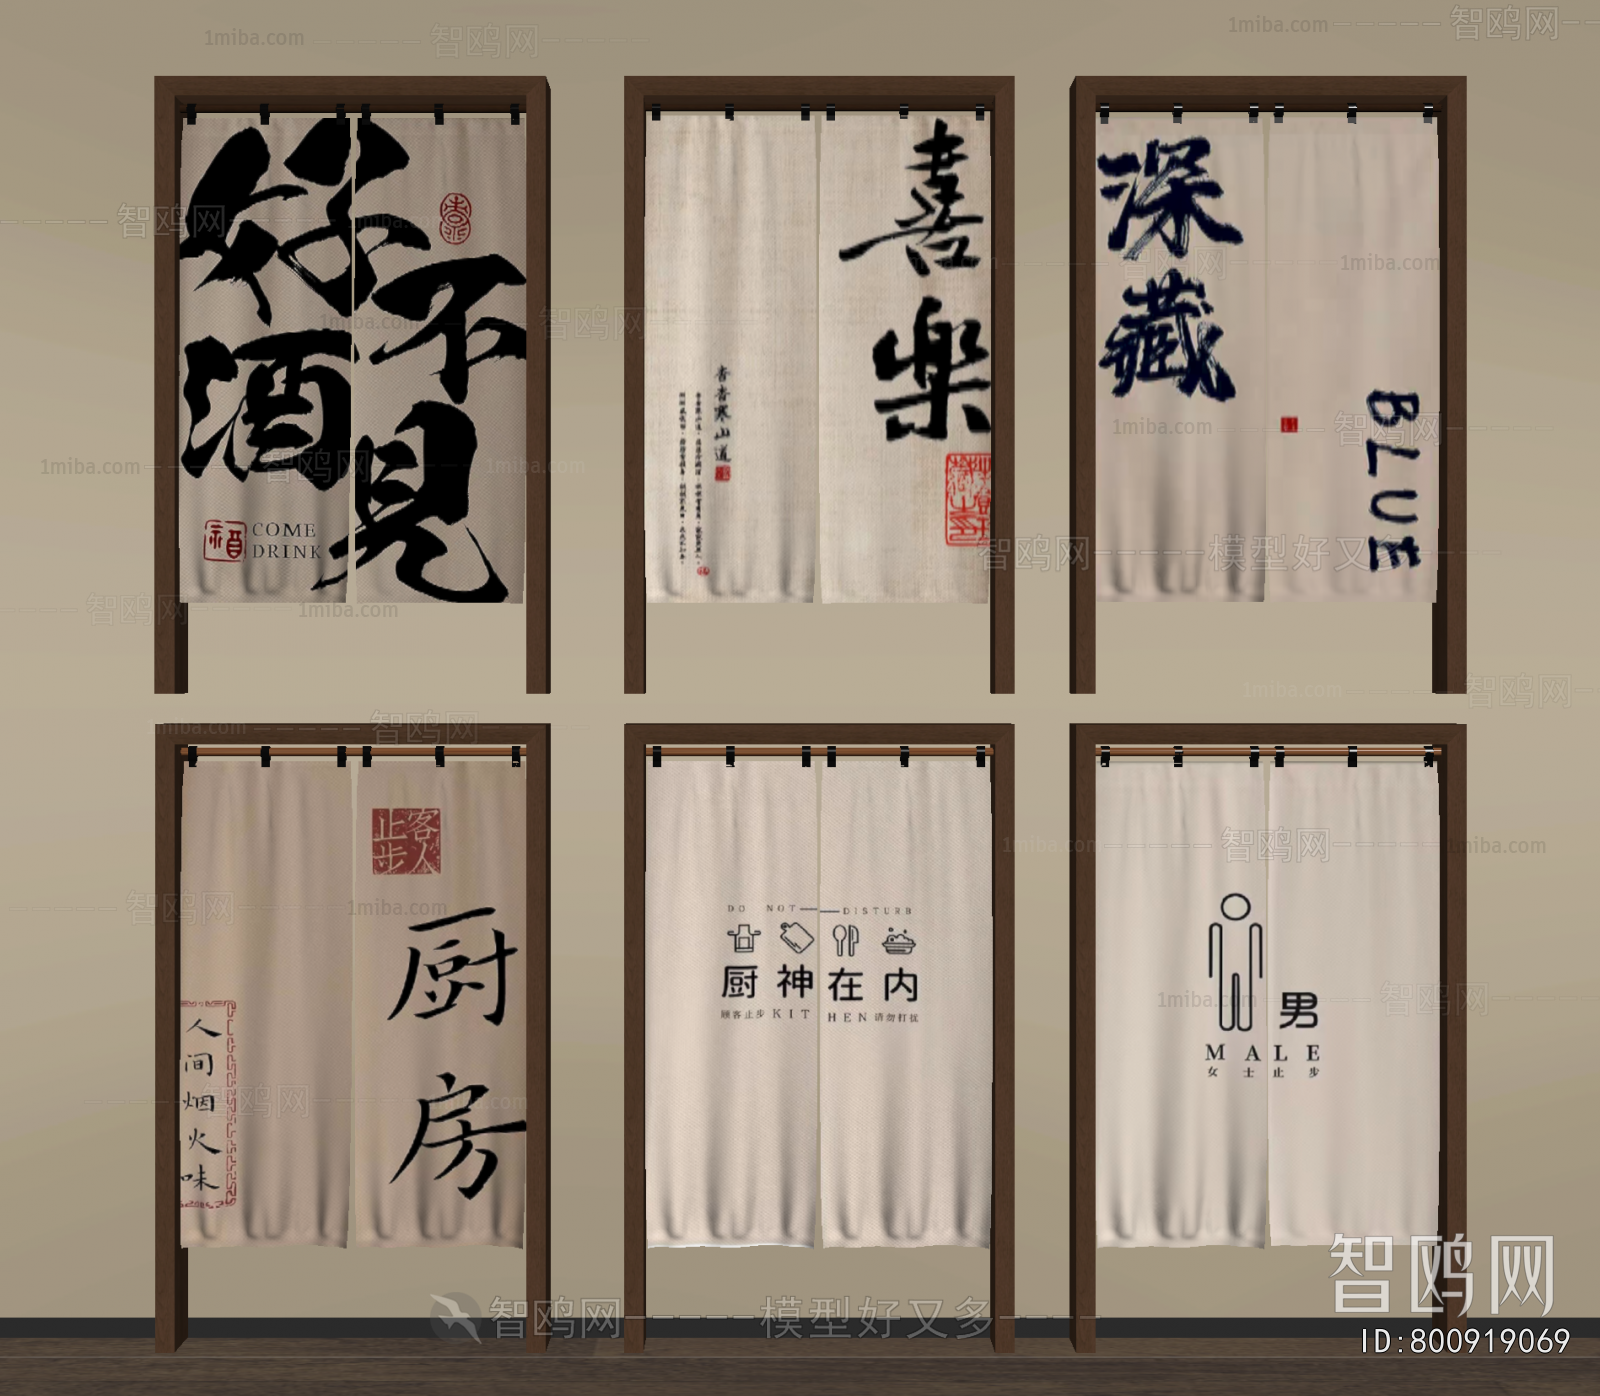 好不
酒見
COME
DRINK
喜
樂
杳杳寒山道
深
藏
BLUE
客人
止步
厨
房
人间烟火味
DO NOT DISTURB
厨神在内
顾客止步 KIT HEN 请勿打扰
男
MALE
女士止步
智鸥网
ID:800919069
智鸥网 模型好又多
1miba.com